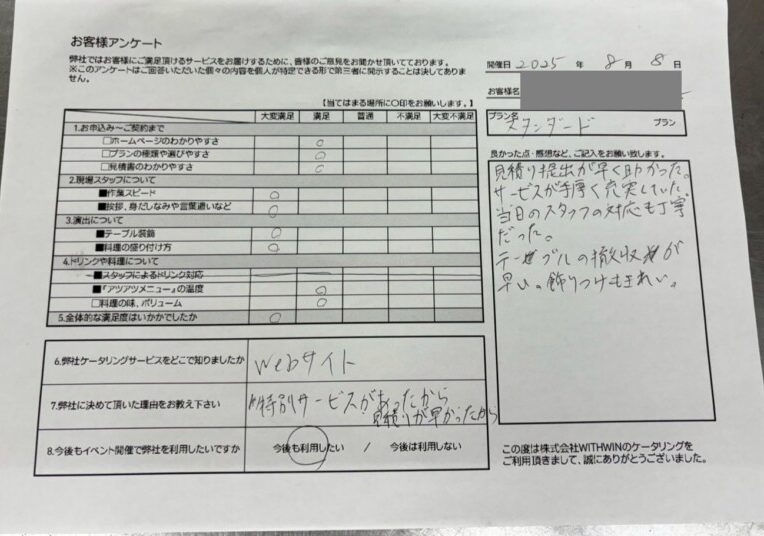 お客様アンケート
弊社ではお客様にご満足頂けるサービスをお届けするために、皆様のご意見をお聞かせ頂いております。
※このアンケートはご回答いただいた個々の内容を個人が特定できる形で第三者に開示することは決してありま
せん。
開催日 2025 年 8 月 8 日
お客様名
プラン名
スタンダード プラン
【当てはまる場所に〇印をお願いします。】
大変満足 満足 普通 不満足 大変不満足
1.お申込み～ご契約まで
□ホームページのわかりやすさ ○
□プランの種類や選びやすさ ○
□見積書のわかりやすさ ○
2.現場スタッフについて
■作業スピード ○
■挨拶、身だしなみや言葉遣いなど ○
3.演出について
■テーブル装飾 ○
■料理の盛り付け方 ○
4.ドリンクや料理について
■スタッフによるドリンク対応
■『アツアツメニュー』の温度 ○
□料理の味、ボリューム ○
5.全体的な満足度はいかかでしたか ○
良かった点・感想など、ご記入をお願い致します。
見積り提出が早く助かった。
サービスが手厚く充実していた。
当日のスタッフの対応も丁寧
だった。
テーブルの撤収が
早い。飾りつけもきれい。
6.弊社ケータリングサービスをどこで知りましたか webサイト
7.弊社に決めて頂いた理由をお教え下さい 特別サービスがあったから
見積りが早かったから
8.今後もイベント開催で弊社を利用したいですか 今後も利用したい / 今後は利用しない
この度は株式会社WITHWINのケータリングを
ご利用頂きまして、誠にありがとうございました。